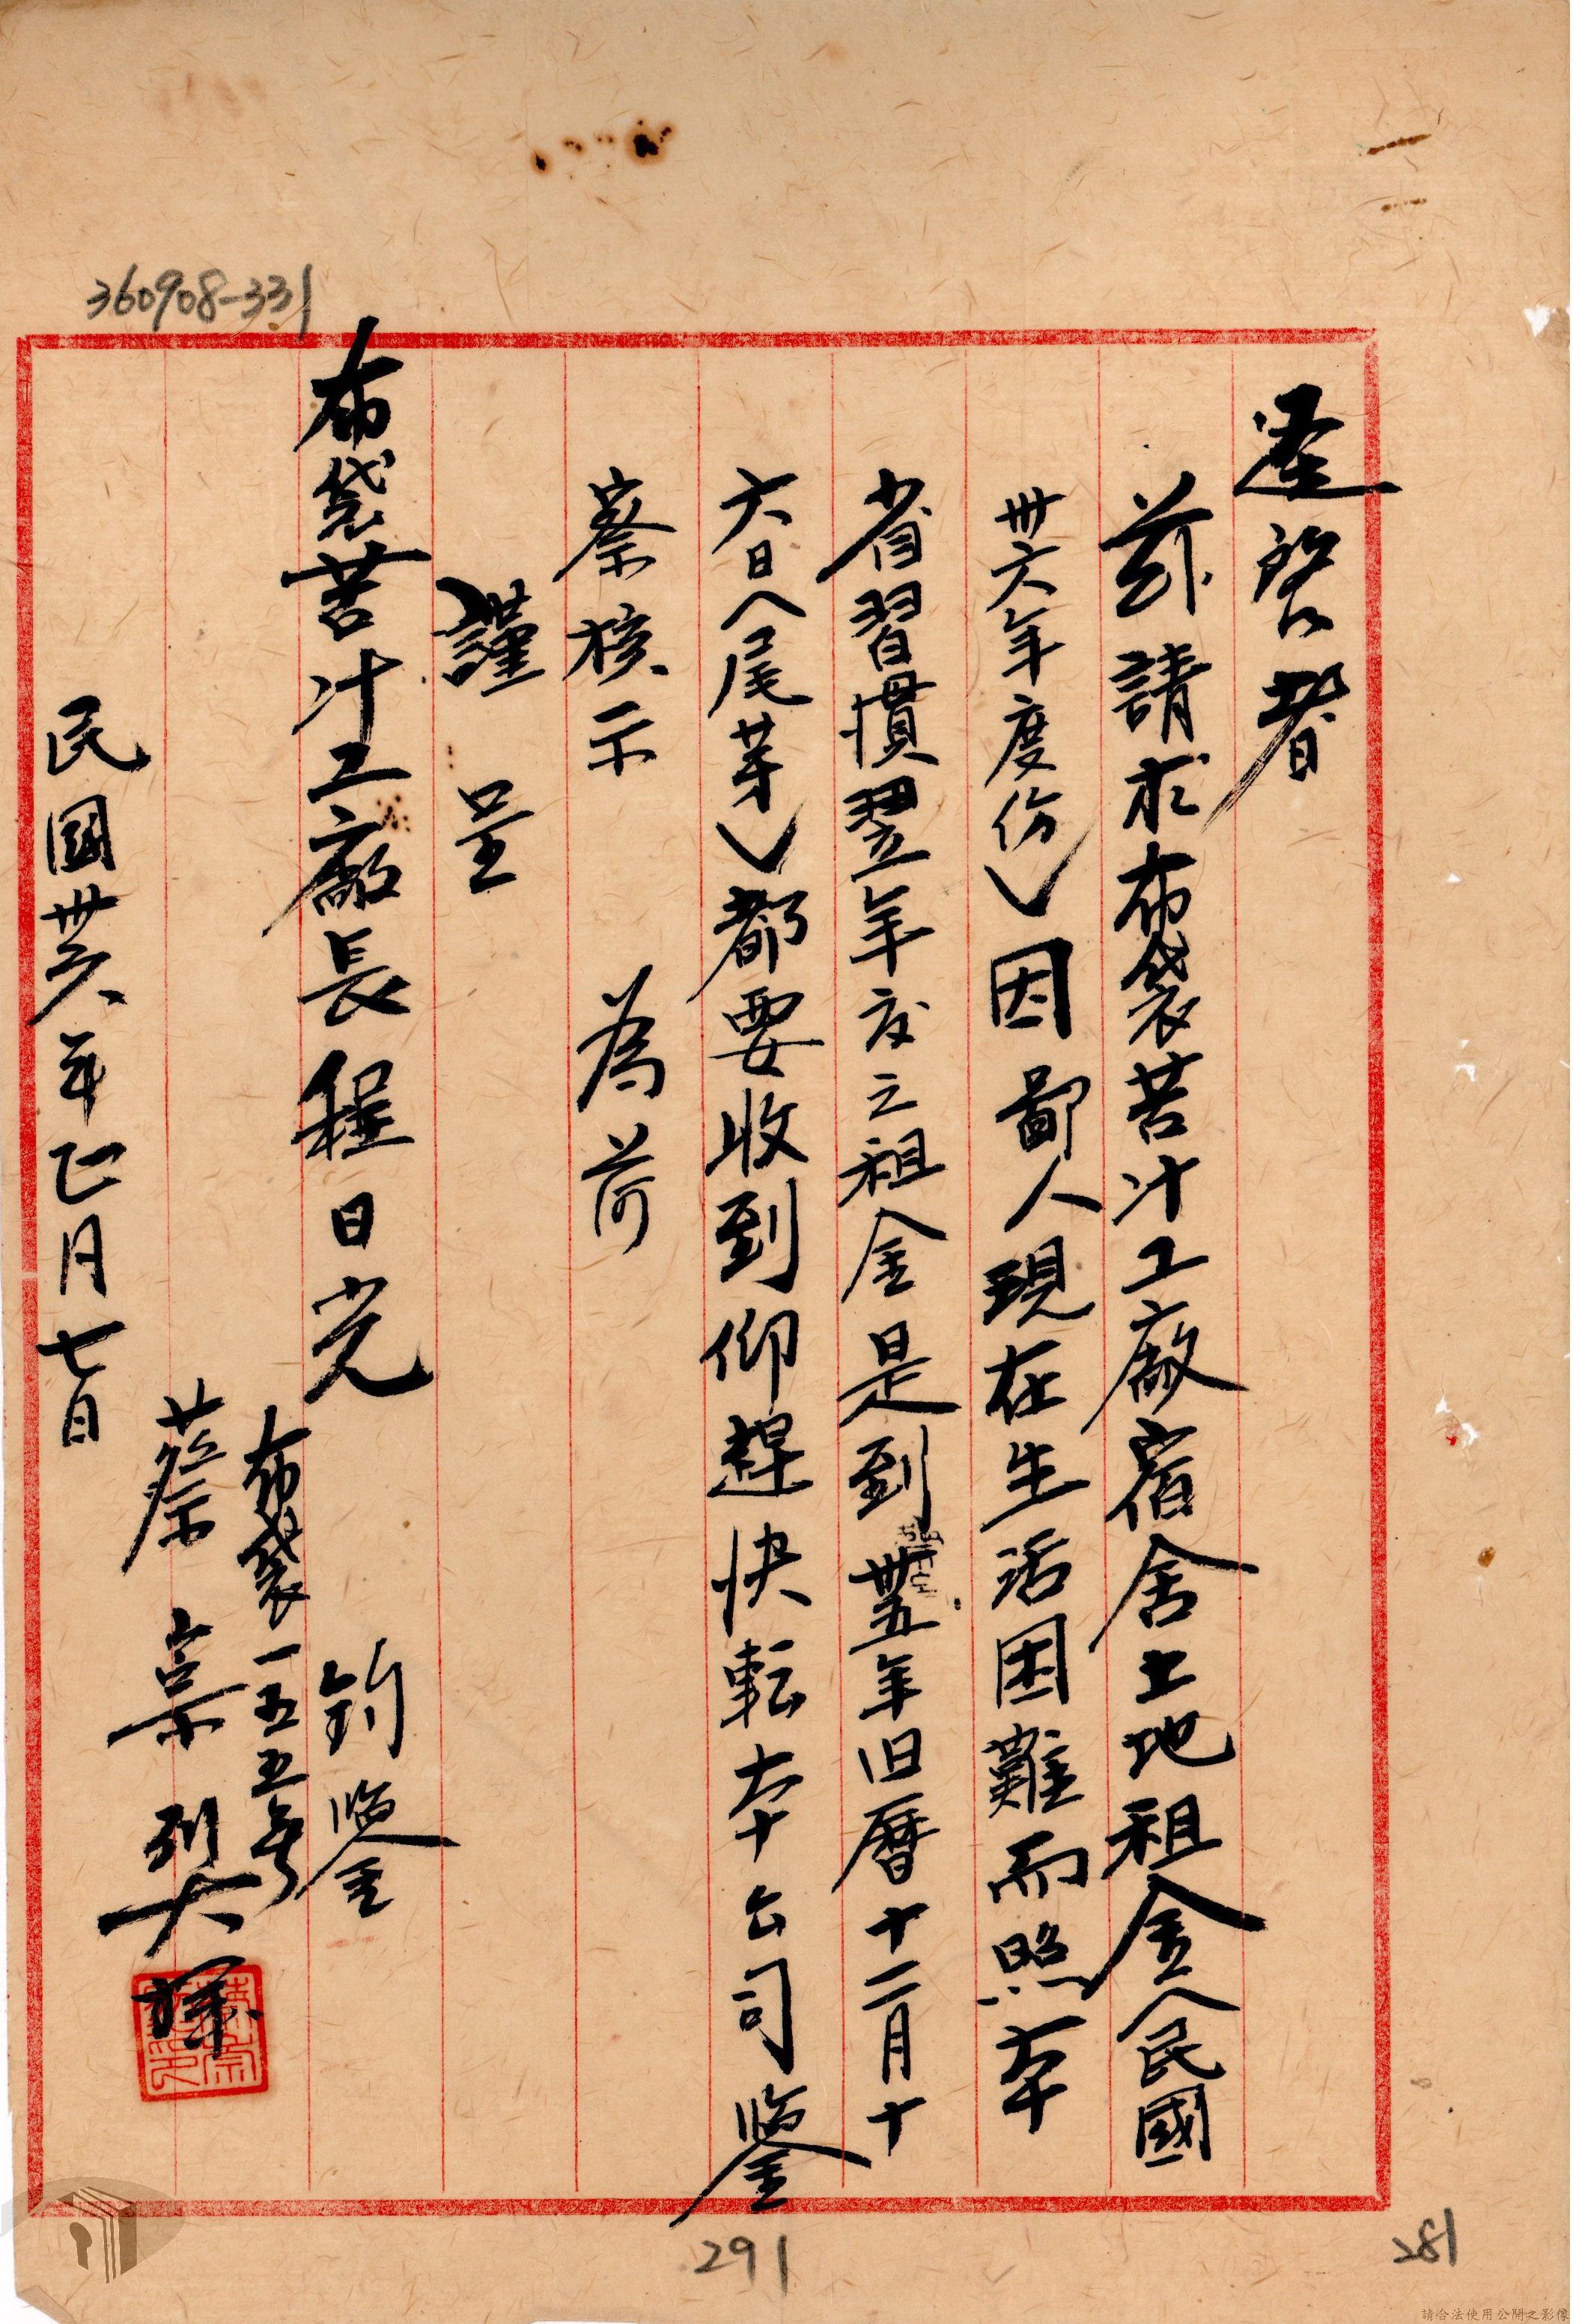 360908-331
逕啓者
茲請求布袋苦汁工廠宿舍土地租金(民國
卅六年度份)因鄙人現在生活困難而照本
省習慣翌年度之租金是到卅五年旧曆十二月十
六日(尾芽)都要收到仰趕快転本公司鑒
察核示 為荷
謹 呈
布袋苦汁工廠長程日光 鈞鑒
布袋一五五号
蔡宗
民國卅六年正月七日
291
281
請合法使用公開之影像